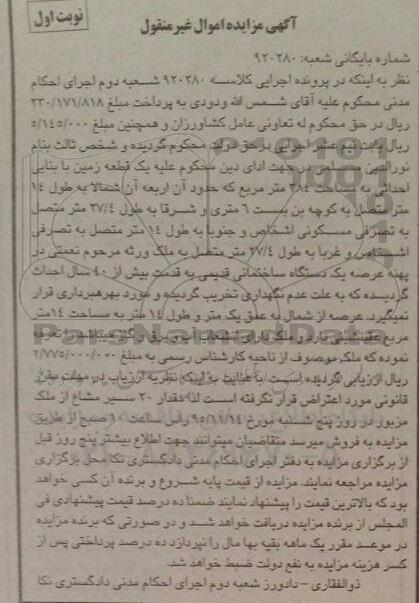 نوبت اول
آگهی مزایده اموال غیر منقول
شماره بایگانی شعبه: ۹۲۰۲۸۰
نظر به اینکه در پرونده اجرایی کلاسه ۹۲۰۲۸۰ شعبه دوم اجرای احکام
مدنی محکوم علیه آقای شمس الله ودودی به پرداخت مبلغ ۲۳۰/۱۷۱/۸۱۸
ریال در حق محکوم له تعاونی عامل کشاورزان و همچنین مبلغ ۵/۱۴۵/۰۰۰
ریال بابت نیم عشر اجرایی در حق دولت محکوم گردیده و شخص ثالث بنام
نورالدین در جهت ادای دین محکوم علیه یک قطعه زمین با بنایی
احداثی به مساحت ۳۸۴ متر مربع که حدود آن اربعه آن شمالا به طول ۱۴
متر متصل به کوچه بن بست ۶ متری و شرقا به طول ۲۷/۴ متر متصل
به تصرفی مسکونی اشخاص و جنوبا به طول ۱۴ متر متصل به تصرفی
اشخاص و غربا به طول ۲۷/۴ متر متصل به ملک ورثه مرحوم نعمتی در
پهنه عرصه یک دستگاه ساختمانی قدیمی به قدمت بیش از ۴۰ سال احداث
گردیده که به علت عدم نگهداری تخریب گردیده و مورد بهرهبرداری قرار
نمیگیرد. عرصه از شمال به عمق یک متر و طول ۱۴ متر به مساحت ۱۴متر
مربع عقبنشینی دارد و ملک دارای انشعاب آب و برق و گاز میباشد
نموده که ملک موصوف از ناحیه کارشناس رسمی به مبلغ ۲/۷۷۵/۰۰۰/۰۰۰
ریال ارزیابی گردیده است با عنایت به اینکه نظریه ارزیاب در مهلت مقرر
قانونی مورد اعتراض قرار نگرفته است لذا مقدار ۲۰ سیر مشاع از ملک
مزبور در روز پنج شنبه مورخ ۹۵/۱۱/۱۴ راس ساعت ۱۰ صبح از طریق
مزایده به فروش میرسد متقاضیان میتوانند جهت اطلاع بیشتر پنج روز قبل
از برگزاری مزایده به دفتر اجرای احکام مدنی دادگستری نکا محل برگزاری
مزایده مراجعه نمایند. مزایده از قیمت پایه شروع و برنده آن کسی خواهد
بود که بالاترین قیمت را پیشنهاد نمایند ضمنا ده درصد قیمت پیشنهادی فی
المجلس از برنده مزایده دریافت خواهد شد و در صورتی که برنده مزایده
در موعد مقرر یک ماهه بقیه بها مال را نپردازد ده درصد پرداختی پس از
کسر هزینه مزایده به نفع دولت ضبط خواهد شد.
ذوالفقاری - دادورز شعبه دوم اجرای احکام مدنی دادگستری نکا